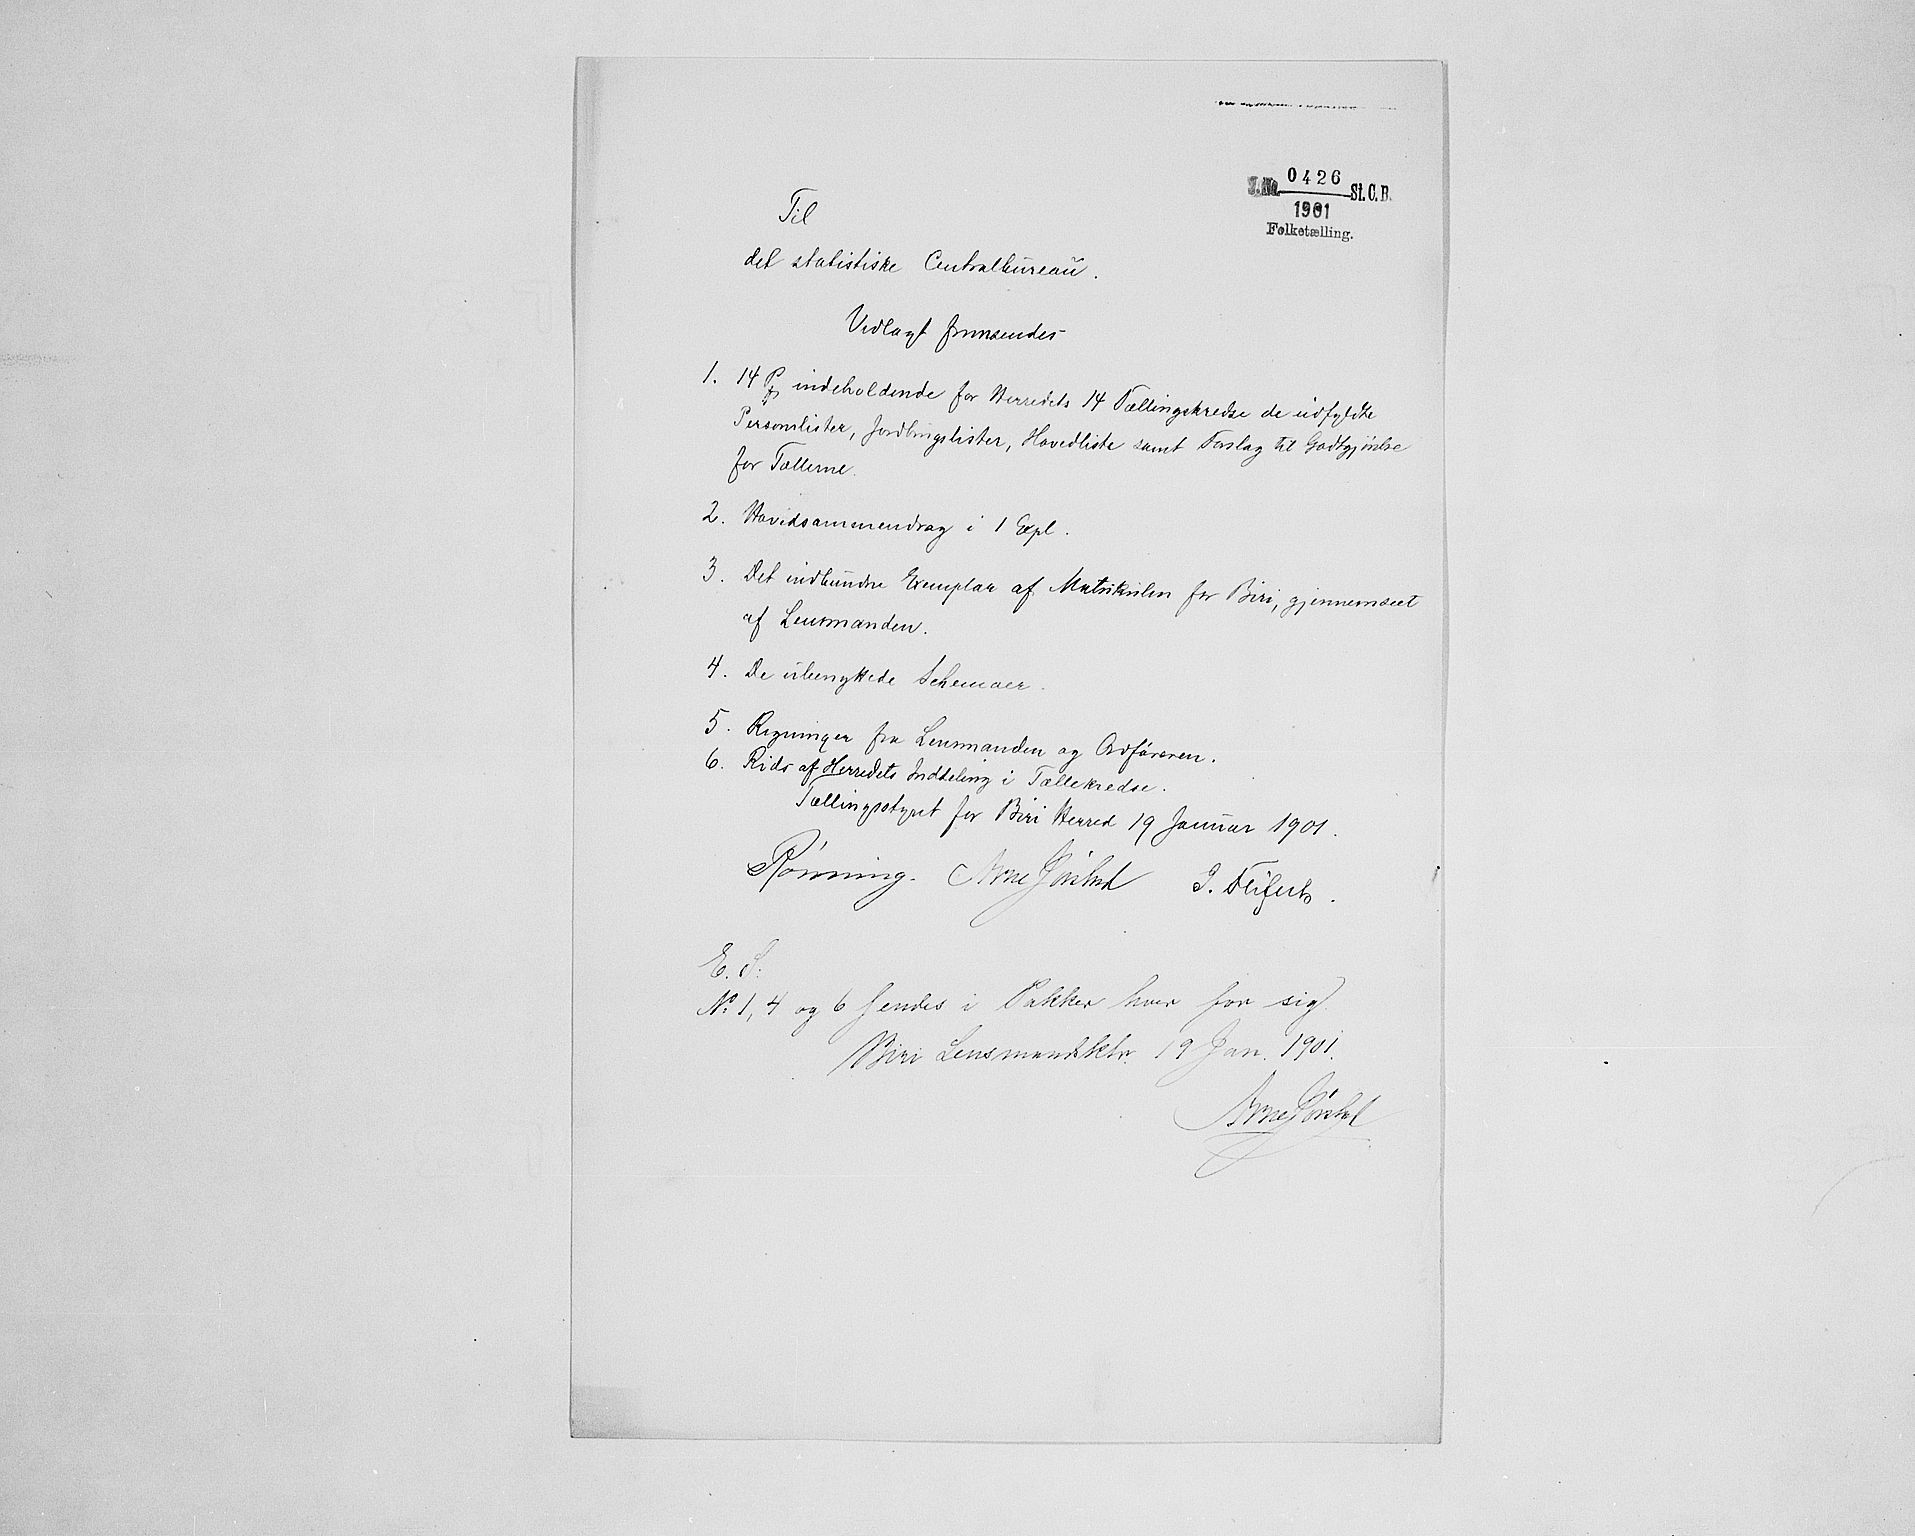 J.No. 0426 St.C.B.
1901
Folketælling.
Til
det statistiske Centralbureau.
Vedlagt fremsendes
1. 14 Pk indeholdende for Herredets 14 Tællingskredse de udfyldte
Personlister, Jordbrugslister, Hovedliste samt Forslag til Godtgjörelse
for Tællerne.
2. Hovedsammendrag i 1 Expl.
3. Det indbundne Exemplar af Matrikulen for Biri, gjennemseet
af Lensmanden.
4. De ubenyttede Schemaer.
5. Regninger fra Lensmanden og Ordføreren.
6. Rids af Herredets Inddeling i Tællekredse.
Tællingsstyret for Biri Herred 19 Januar 1901.
Rønning. Arne
E. S.
No 1, 4 og 6 sendes i Pakker hver for sig.
Biri Lensmandsktr. 19 Jan. 1901.
Arne